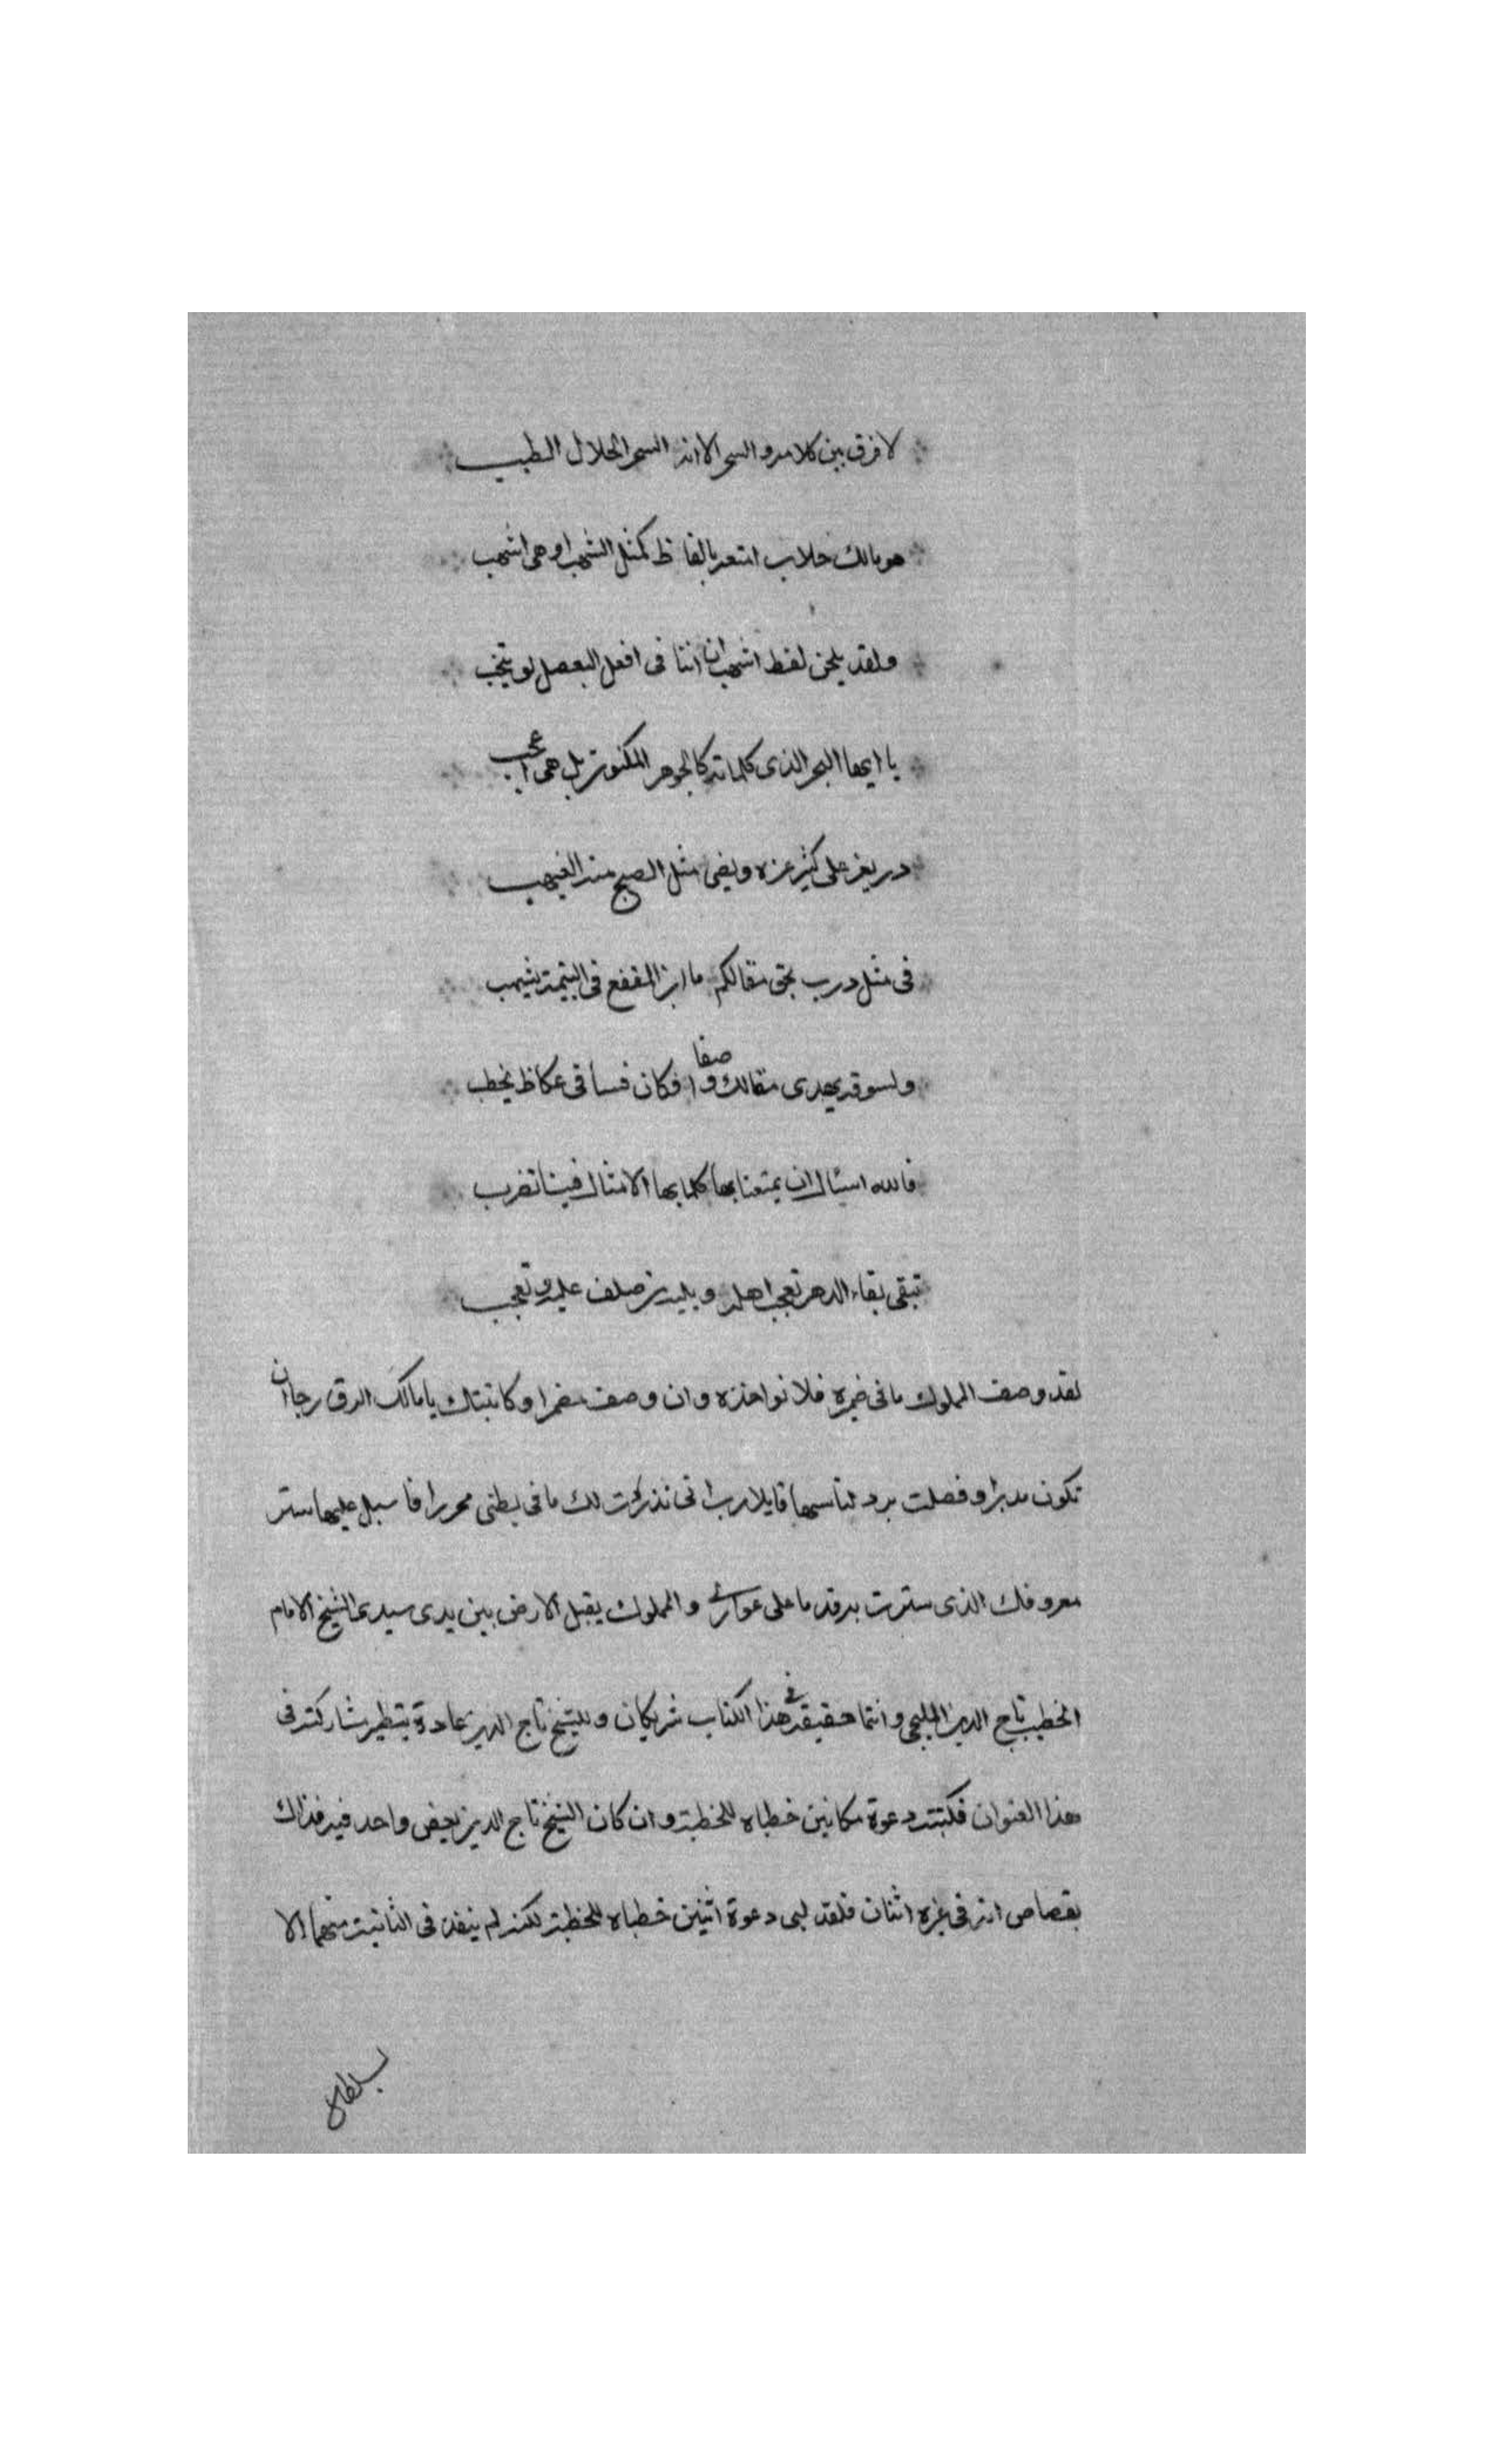 لا فرق بين كلامه والسحر الا انه السحر الحلال الطيب
هو مالك خلاب امتعه بالفاظ كمثل الشهب او هي اشهب
ولقد يلحن لفظ اشهب ان اتنا في افعل
يا ايها البحر الذي كلماته كالجوهر المكنون بل هي اعجب
در يعز على كثير عزه ويضي مثل الصبح منه الغيهب
في مثل درب بحق مقالكم ما ابن المقفع في اليتيمة يسهب
ولسوقه يهدى مقالك وافكان قسا في عكاظ يخطب
صفا
فالله اسئال ان يمتعنا بها كلما بها الامثال فينا تضرب
تبقى بقاء الدهر تعجب اهله صلف عليه وتعجب
لقد وصف المملوك ما في ضميره فلا تواخذه وان وصف مضمرا وكاتبتك يا مالك الرق رجا ان
تكون مدبرا وفصلت برد قايلا رب اني نذرت لك ما في بطني محررا فاسبل عليها ستر
معروفك الذي سترت به قدما على عواري والمملوك يقبل الارض بين يدي سيدي الشيخ الامام
الخطيب تاج الدين المليجي وانتما حقيقة في هذا الكتاب شريكان وللشيخ تاج الدين عادة بتنظير مشاركته في
هذا العنوان فكتبته دعوة مكانين خطباه للخطبة وان كان الشيخ تاج الدين يحض واحد فيه فذاك
بقصاص انه في غزه اثنان فلقد لبى دعوة اثنين خطباه للخطبة لكنه لم ينفذ في الثانية منهما الا
بسلطان